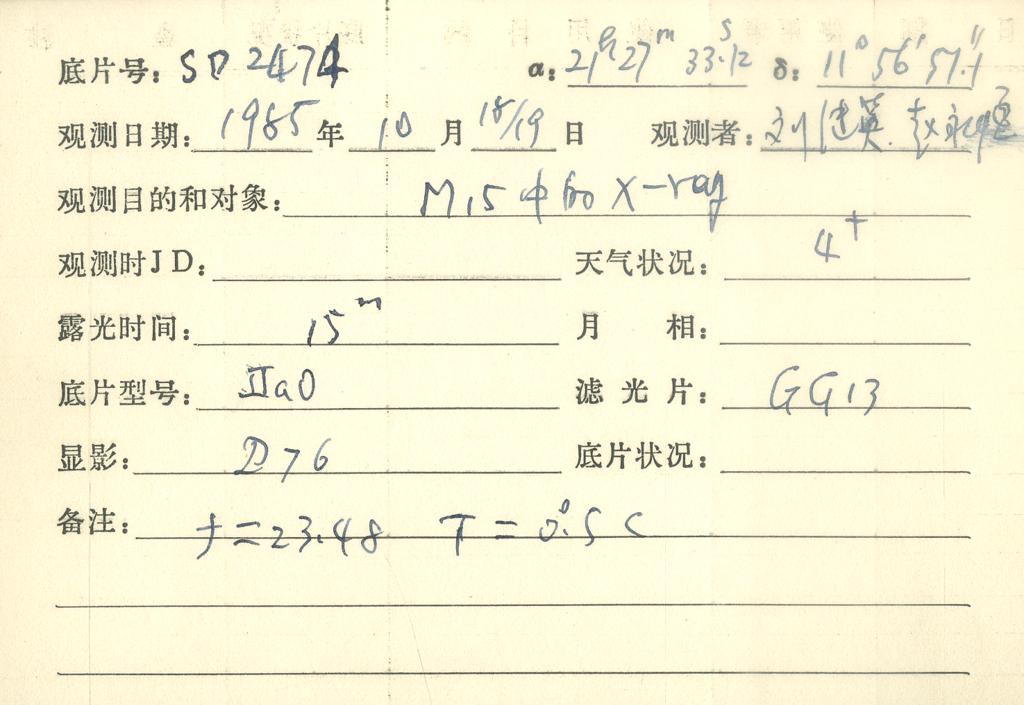 底片号: SD 2474 α: 21h 27m 33s.12 δ: 11° 56′ 57″.1
观测日期: 1985 年 10 月 18/19 日 观测者: 刘建英 赵永恒
观测目的和对象: M15 中的 X-ray
观测时JD: 天气状况: 4+
露光时间: 15m 月 相:
底片型号: IIaO 滤 光 片: GG13
显影: D76 底片状况:
备注: f=23.48 T=0°.5 C